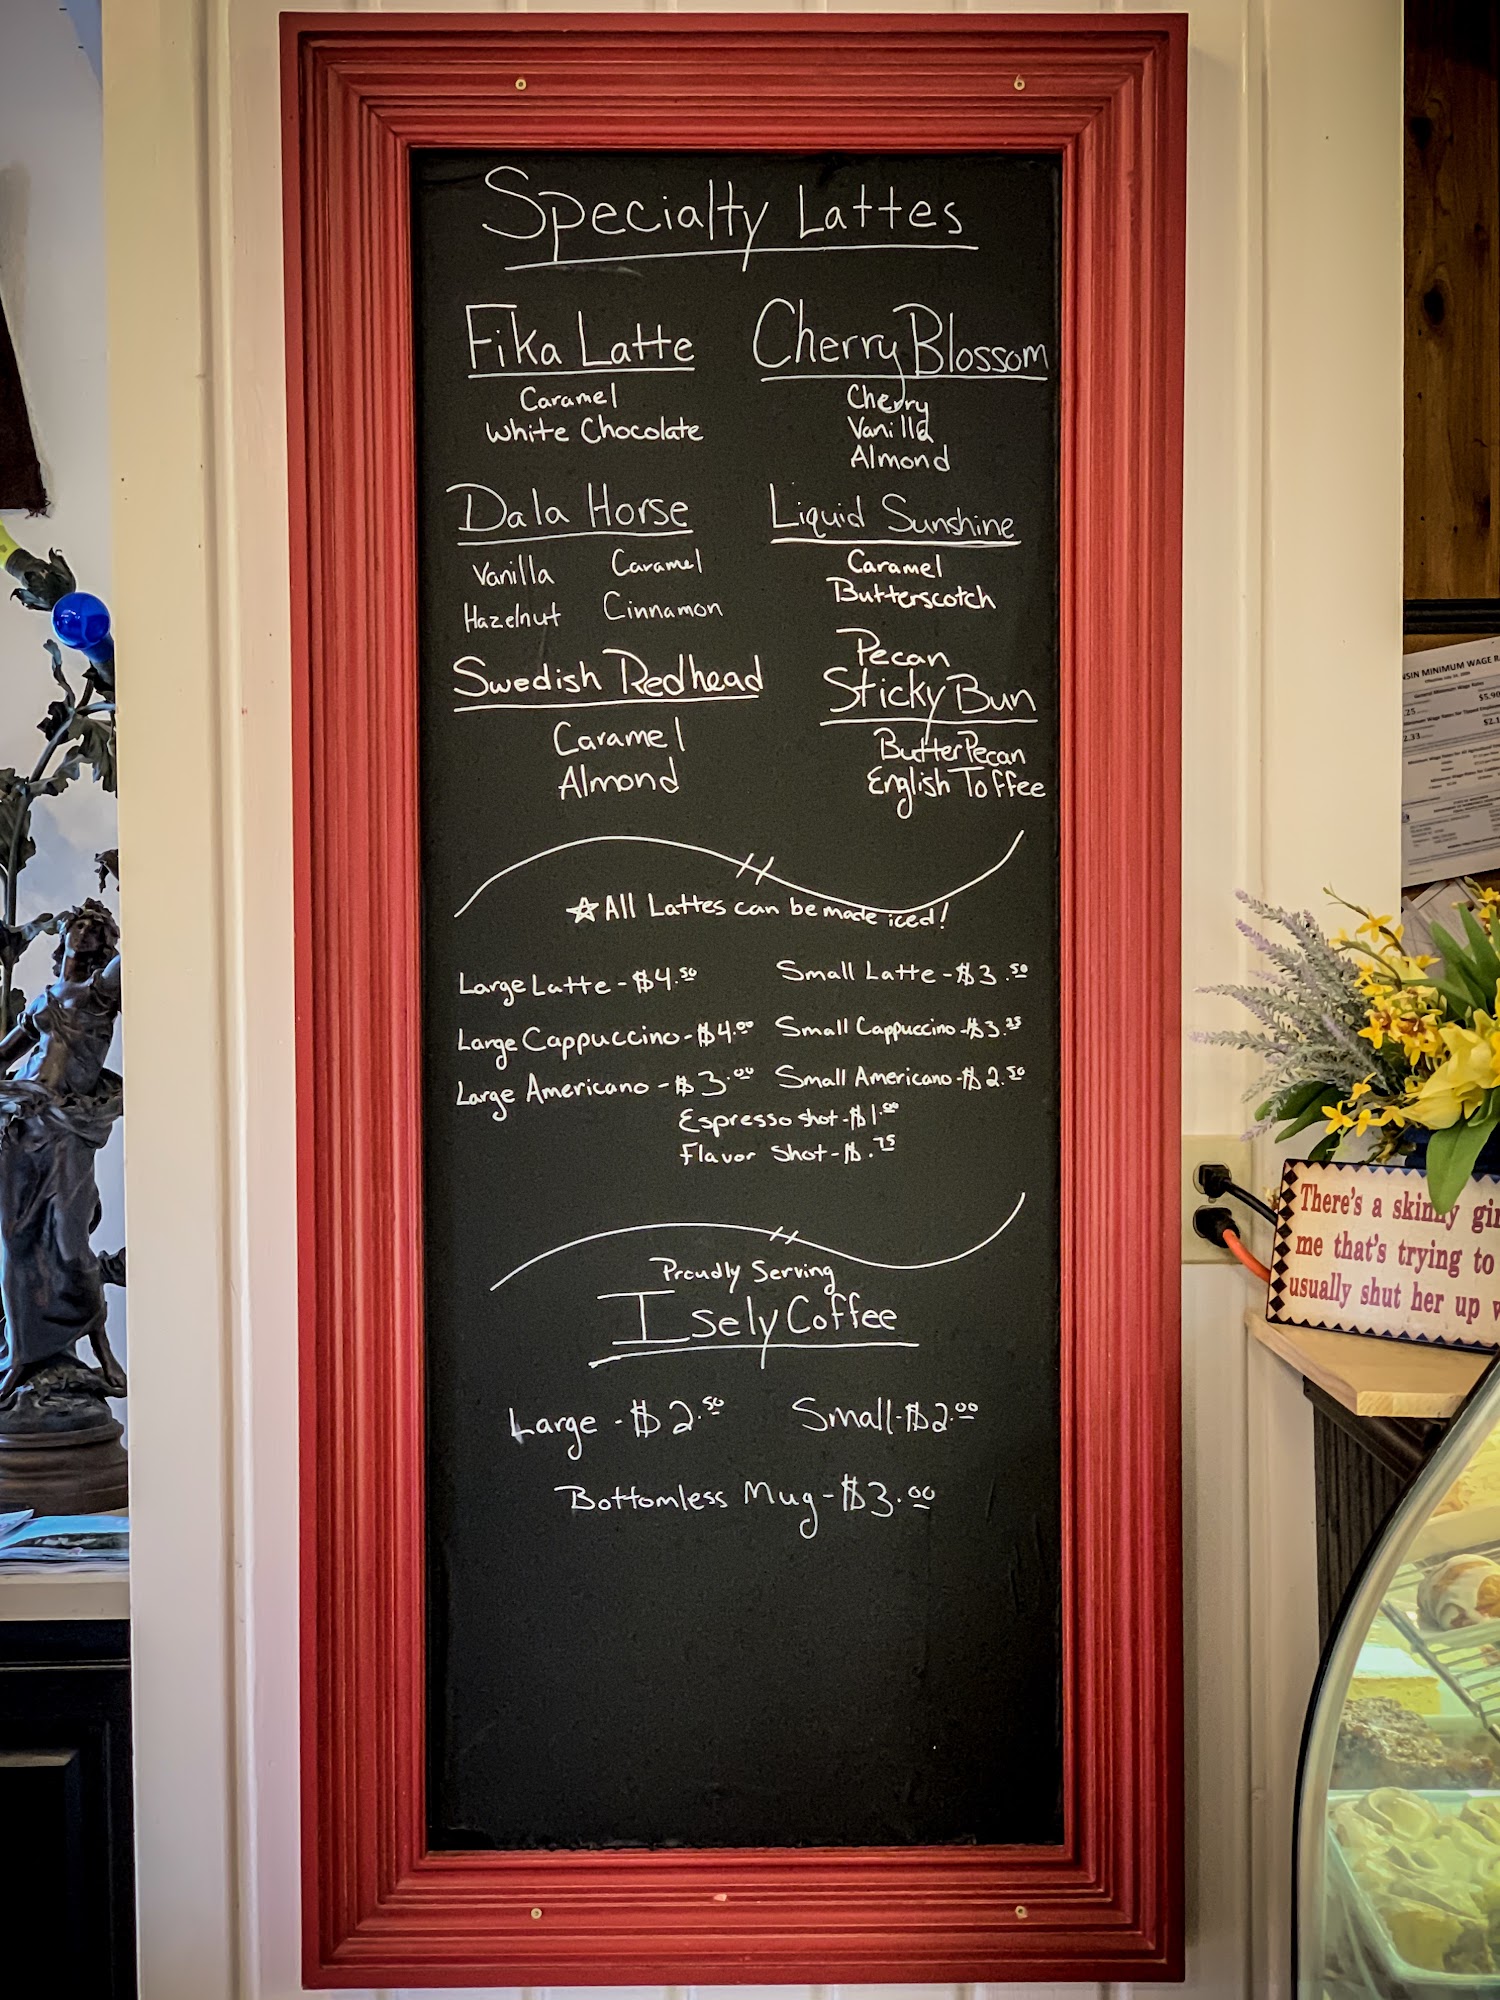 Specialty Lattes
Fika Latte
Caramel
White Chocolate
Cherry Blossom
Cherry
Vanilla
Almond
Dala Horse
Vanilla Caramel
Hazelnut Cinnamon
Liquid Sunshine
Caramel
Butterscotch
Swedish Redhead
Caramel
Almond
Pecan
Sticky Bun
Butter Pecan
English Toffee
☆ All Lattes can be made iced!
Large Latte - $4.50 Small Latte - $3.50
Large Cappuccino - $4.00 Small Cappuccino - $3.25
Large Americano - $3.00 Small Americano - $2.50
Espresso shot - $1.00
Flavor Shot - $.75
Proudly Serving
Isely Coffee
Large - $2.50 Small - $2.00
Bottomless Mug - $3.00
MINIMUM WAGE
There's a skinny
me that's trying to
usually shut her up